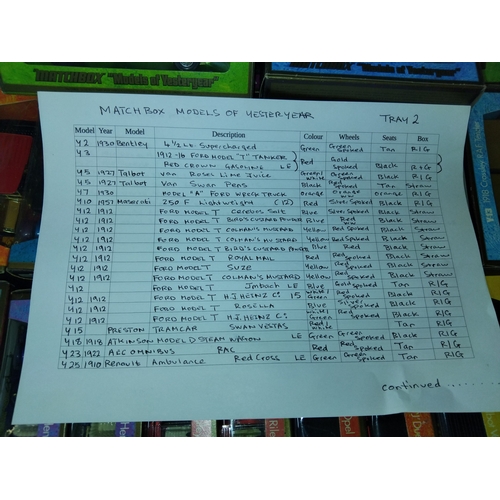 MATCHBOX "Models of Yesteryear"
MATCHBOX MODELS OF YESTERYEAR TRAY 2
Model Year Model Description Colour Wheels Seats Box
Y2 1930 Bentley 4 1/2 Lt. Supercharged Green Green Spoked Tan RIG
Y3 1912-16 FORD MODEL "T" TANKER Gold
RED CROWN GASOLINE LE Red Spoked Black RIG
Y5 1927 Talbot Van Roses Lime Juice Green/White Red Spoked Black RIG
Y5 1927 Talbot Van Swan Pens Black Red Spoked Tan Straw
Y7 1930 MODEL "A" FORD WRECK TRUCK Orange Orange Black RIG
Y10 1957 Maserati 250 F Lightweight (12) Red Silver Spoked Black RIG
Y12 1912 FORD MODEL T Cerebos Salt Blue Silver Spoked Black Straw
Y12 1912 FORD MODEL T BIRD'S CUSTARD POWDER Blue Red Black Straw
Y12 1912 FORD MODEL T COLMAN'S MUSTARD Yellow Red Spoked Black Straw
Y12 1912 FORD MODEL T COLMAN'S MUSTARD Yellow Red Spoked Black Straw
Y12 1912 FORD MODEL T BIRD'S CUSTARD POWDER Blue Red Black Straw
Y12 1912 FORD MODEL T ROYAL MAIL Red Red Spoked Black Straw
Y12 1912 FORD MODEL T SUZE Yellow Red Spoked Black Straw
Y12 1912 FORD MODEL T COLMAN'S MUSTARD Yellow Red Spoked Black Straw
Y12 FORD MODEL T LE Blue Gold Spoked Tan RIG
Y12 1912 FORD MODEL T H.J. HEINZ Co 15 White/Green Red Spoked Black RIG
Y12 1912 FORD MODEL T ROSELLA Blue Black RIG
Y12 1912 FORD MODEL T H.J. HEINZ Co White/Green Red Spoked Black RIG
Y15 PRESTON TRAMCAR SWAN VESTAS Red White RIG
Y18 1918 ATKINSON MODEL D STEAM WAGON LE Green Red Spoked Black RIG
Y23 1922 AEC OMNIBUS RAC Red Red Spoked Tan RIG
Y25 1910 Renault Ambulance Red Cross LE Green Green Spoked Tan RIG
continued.......